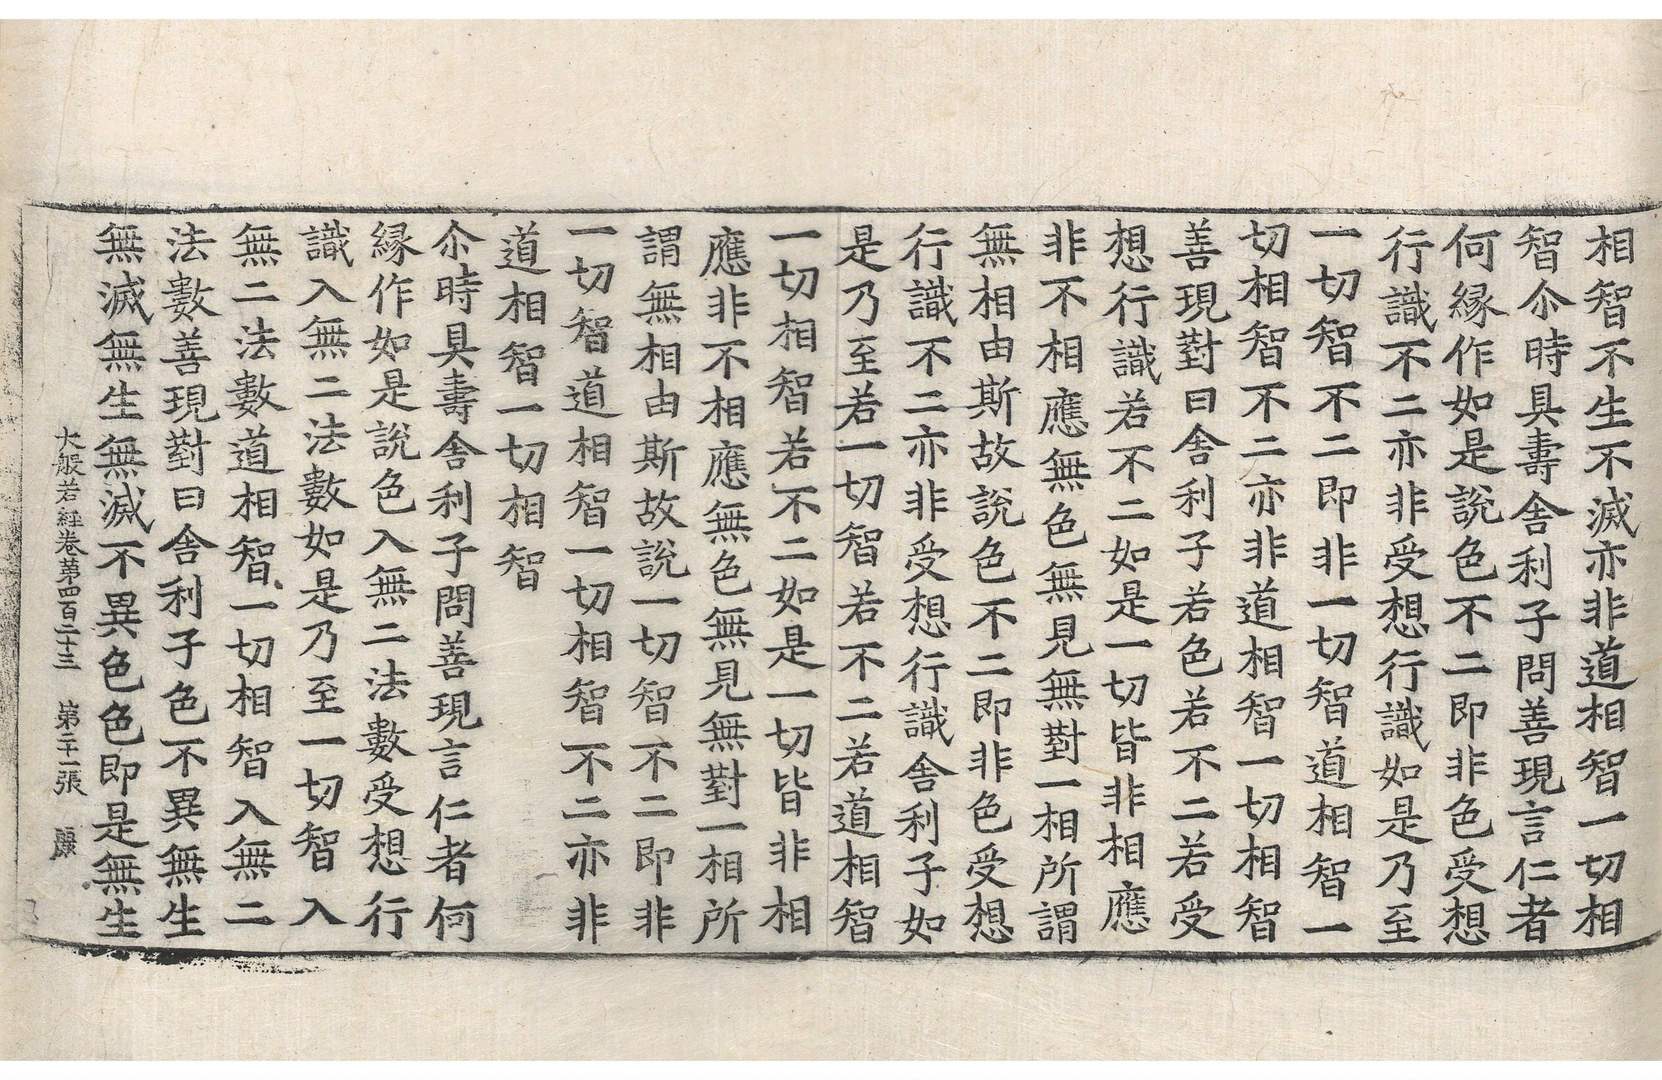 相智不生不滅亦非道相智一切相
智尒時具壽舍利子問善現言仁者
何緣作如是說色不二即非色受想
行識不二亦非受想行識如是乃至
一切智不二即非一切智道相智一
切相智不二亦非道相智一切相智
善現對曰舍利子若色若不二若受
想行識若不二如是一切皆非相應
非不相應無色無見無對一相所謂
無相由斯故說色不二即非色受想
行識不二亦非受想行識舍利子如
是乃至若一切智若不二若道相智
一切相智若不二如是一切皆非相
應非不相應無色無見無對一相所
謂無相由斯故說一切智不二即非
一切智道相智一切相智不二亦非
道相智一切相智
尒時具壽舍利子問善現言仁者何
緣作如是說色入無二法數受想行
識入無二法數如是乃至一切智入
無二法數道相智一切相智入無二
法數善現對曰舍利子色不異無生
無滅無生無滅不異色色即是無生
大般若經卷第四百二十三 第二十一張 麗